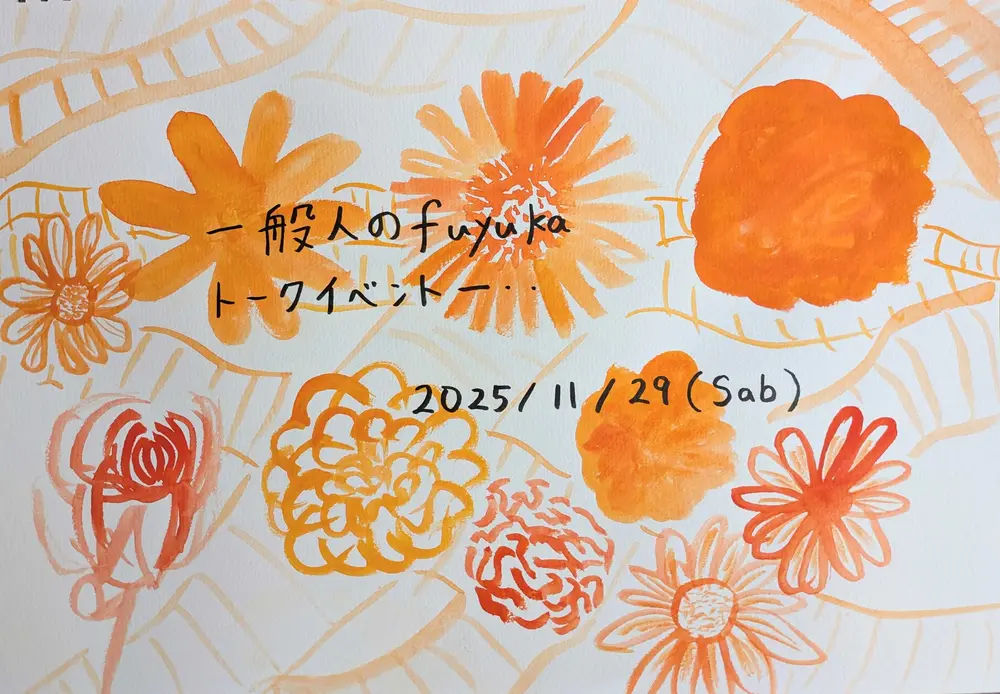 一般人のfuyuka
トークイベントー··
2025/11/29(Sab)